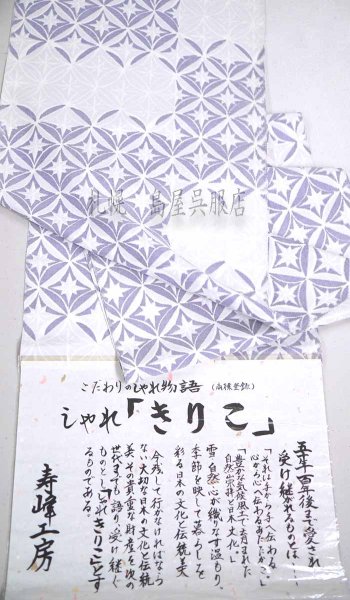 札幌 島屋呉服店
こだわりのしゃれ物語 (商標登録)
しゃれ「きりこ」
五年百年後まで愛され
受け継がれるものでは…
「それは手から手へ伝わる
心から心へ伝わるあたたかさ。」
「豊かな気候風土で育まれた
自然崇拝と日本文化。」
雪、自然、心が織りなす温もり、
季節を映して暮らしを
彩る日本の文化と伝統美
今残して行かなければなら
ない大切な日本の文化と伝統
美、その貴重な財産を次の
世代までも語り、受け継ぐ
ものとし「しゃれきりこ」とす
るものである。
寿峰工房